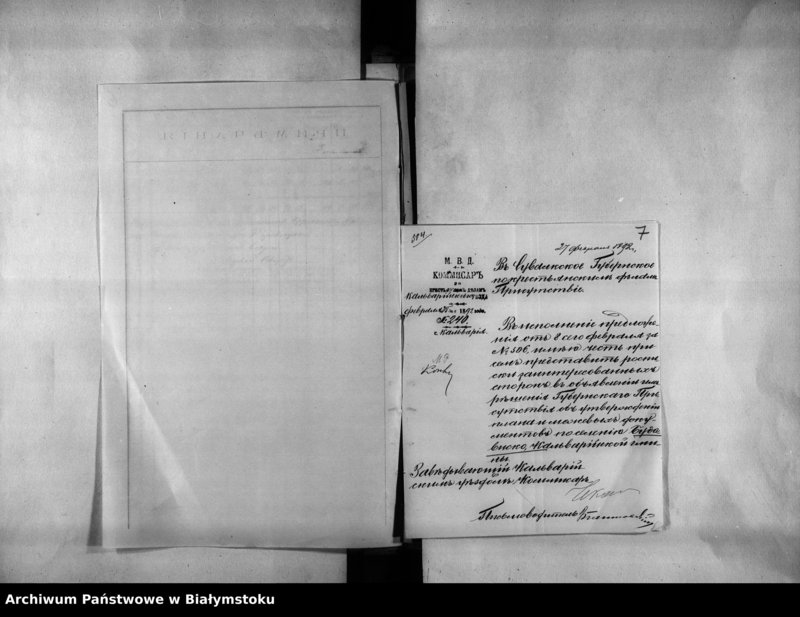 ПРИМѢЧАНІЯ
7
27 февраля 1892 г.
М. В. Д.
КОММИСАРЪ
по
КРЕСТЬЯНСКИМЪ ДѢЛАМЪ
Кальварійскаго уѣзда
февраля 1892 года.
№ 240.
г. Кальварія.
Въ Сувалкское Губернское
по крестьянскимъ дѣламъ
Присутствіе.
Во исполненіе предложе-
нія отъ 8 сего февраля за
№ 506, имѣю честь при
семъ представить роспи
ски заинтересованныхъ
сторонъ въ объявленіи имъ
рѣшенія Губернскаго При
сутствія объ утвержденіи
плана и межевыхъ доку
ментовъ по селенію
Кальварійской гми-
ны.
Завѣдывающій Кальварій
скимъ уѣздомъ Коммисаръ
Письмоводитель
Archiwum Państwowe w Białymstoku